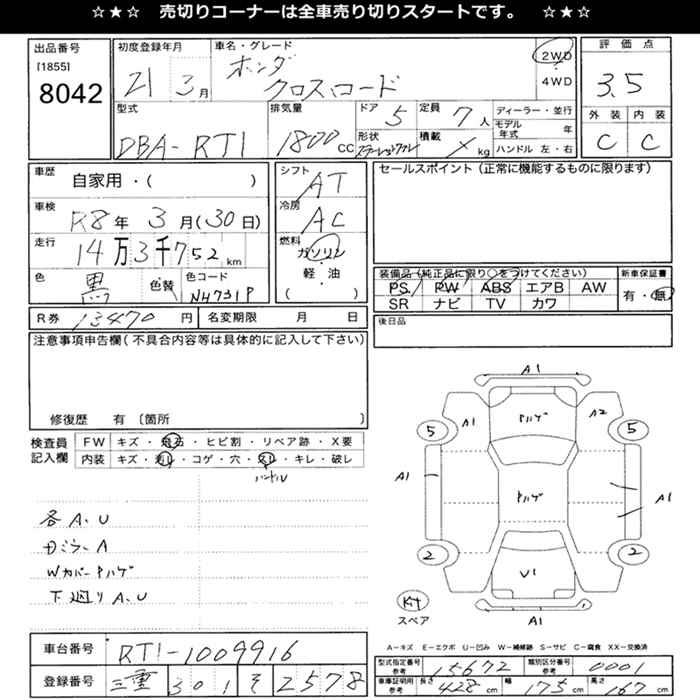 ☆★☆ 売切りコーナーは全車売り切りスタートです。 ☆★☆
出品番号
[1855]
8042
初度登録年月
21 3月
車名・グレード
ホンダ
クロスロード
2WD
4WD
評価点
3.5
外装 内装
C C
型式
DBA-RT1
排気量
1800 CC
ドア 5
形状
定員 7人
積載 × kg
ディーラー・並行
モデル年式 年
ハンドル 左・右
車歴
自家用・( )
車検
R8年 3月(30日)
走行
14万3千752km
色
黒
色替
色コード
NH731P
シフト
AT
冷房
AC
燃料
ガソリン
・
軽油
( )
セールスポイント(正常に機能するものに限ります)
装備品(純正品に限り○をつけてください)
PS PW ABS エアB AW
SR ナビ TV カワ
新車保証書
有・無
R券 13470円
名変期限 月 日
後日品
注意事項申告欄(不具合内容等は具体的に記入して下さい)
修復歴 有〔箇所 〕
検査員
記入欄
FW キズ・飛石・ヒビ割・リペア跡・X要
内装 キズ・汚レ・コゲ・穴・スレ・キレ・破レ
ハンドル
各A、U
Wカバーハゲ
下廻りA、U
A1
A1
ハゲ
A2
5
5
A1
ハゲ
A1
2
2
U1
A1
スペア
A-キズ E-エクボ U-凹み W-補修跡 S-サビ C-腐食 XX-交換済
車台番号
RT1-1009916
登録番号
三重 301 そ 2578
型式指定番号
参考
15672
類別区分番号
参考
0001
車庫証明用
参考
長さ 428cm
幅 175cm
高さ 167cm